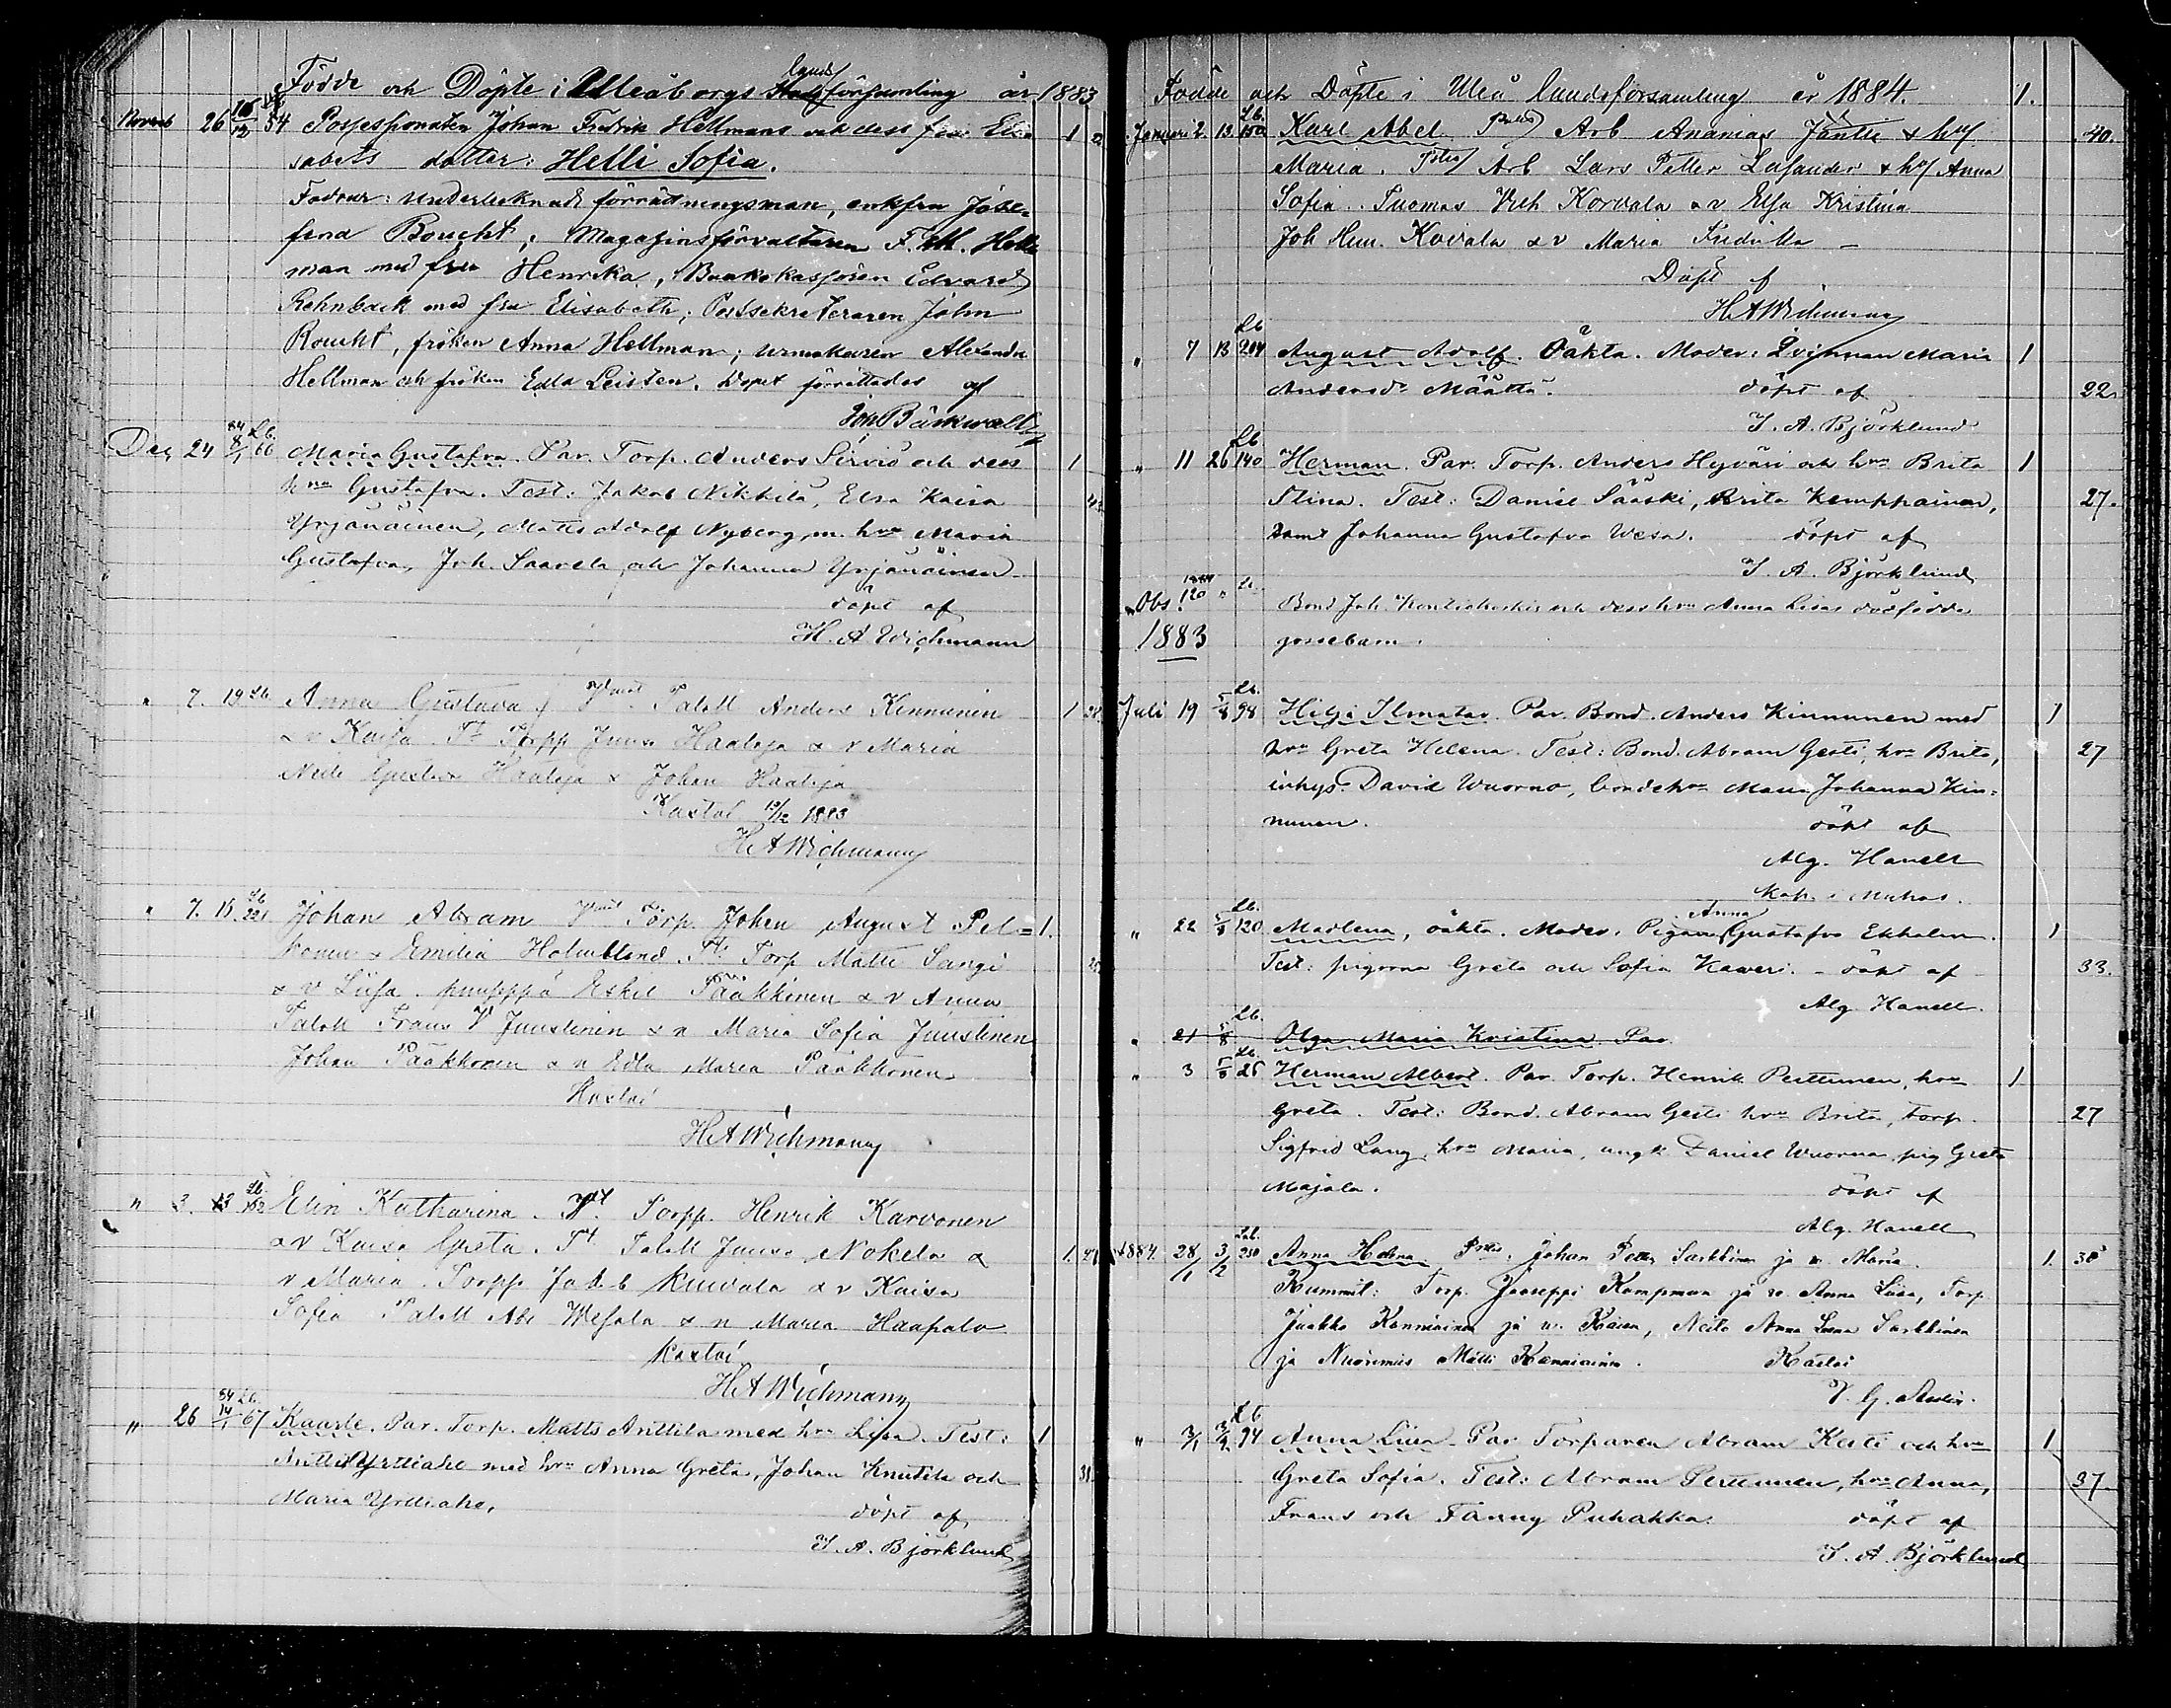 Födde och Döpte i Uleåborgs lands församling år 1883
Novemb 26 16/12 Lb. 54 Possessionaten Johan Fredrik Hellmans och dess fru Eli-
sabets dotter: Helli Sofia.
Faddrar: undertecknade förrättningsman, enkfru Jose-
fina Boucht; Magasinsförvaltaren F. W. Hell-
man med fru Henrika, Bankokassören Edvard
Rehnbäck med fru Elisabeth; Postsekreteraren John
Boucht, fröken Anna Hellman; urmakaren Alexander
Hellman och fröken Edla Leisten. Dopet förrättades af
Joh Bäckwall
Dec 24 84 8/1 Lb. 66 Maria Gustafva. Par. Torp. Anders Sirviö och dess 1
hru Gustafva. Test: Jakob Nikkilä, Elsa Kaisa 42
Yrjänäinen, Matts Adolf Nyberg m. hru Maria
Gustafva, Joh. Saarela och Johanna Yrjänäinen
döpt af
H. A Wichmann
" 7. 19 Lb. Anna Gustava Taloll Anders Kinnunen 1 28
& v Kaisa Tt Torpp Juuso Haataja & v Maria
Neits Gustava Haataja & Johan Haataja
Kastoi 19/12 1883
H A Wichmann
" 7. 15. Lb. 221 Johan Abram Torp. Johan August Pel= 1.
konen & Emilia Holmblad. Tt: Torp Matti Sangi
& v Liisa. Eskil Pääkkönen & v Anna
Talok Frans V Juustinen & n Maria Sofia Juustinen
Johan Pääkkönen & n Edla Maria Pääkkönen
Kastoi
H A Wichmann
" 3. 13 Lb. 162 Elin Katharina. Torpp. Henrik Karvonen
& v Kaisa Greta. Tt Talok Juuso Nokela & 1.
v Maria. Torpp. Jakob Kuivala & v Kaisa
Sofia Talok Abr Wesala & n Maria Haapala
Kastoi
H A Wichmann
" 26 84 14/1 Lb. 67 Kaarle. Par. Torp. Matts Anttila med hru Lisa. Test: 1
Antti Yrttiaho med hru Anna Greta, Johan Knutila och 31.
Maria Yrttiaho.
döpt af
I. A. Björklund
Födde och Döpte i Uleå landsförsamling år 1884. 1.
Januari 2. 13. Lb. 150 Karl Abel Arb Ananias Jäntti & hu 40.
Maria. Arb Lars Petter Lassander & hu Anna
Sofia. Tuomas Korvala & v Elsa Kristina
Joh Hen. Kovala & v Maria Fredrika
Döpt af
H A Wichmann
" 7 13 Lb 204 August Adolf. Oäkta. Moder: Qvinnan Maria 1
Andersdr Määttä. döpt af 22
I. A. Björklund
" 11 26 Lb. 140 Herman. Par. Torp. Anders Hyväri och hru Brita 1
Stina. Test: Daniel Sääski, Brita Kemppainen, 27.
samt Johanna Gustafva Wesa. döpt af
I. A. Björklund
Obs! 120 Lb. Bond. Joh. och dess hru Anna Lisas dödfödda
1883 gossebarn.
Juli 19 5/8 Lb. 98 Hilja Ilmatar. Par. Bond. Anders Kinnunen med 1
hru Greta Helena. Test: Bond. Abram Gesti, hru Brita, 27
inhys. David Wuorno, bondehru Maria Johanna Kin=
nunen. döpt af
Alg. Hanell
Kap. i Muhos.
" 22 5/8 Lb. 120 Madlena, oäkta. Moder. Pigan Anna Gustafva Ekholm. 1
Test: pigorna Greta och Sofia Kaweri. - döpt af 33.
Alg. Hanell.
" 21 5/8 Lb. Olga Maria Kristina Par
" 3 5/8 Lb. 26 Herman Albert. Par. Torp. Henrik Perttunen, hru 1
Greta. Test: Bond. Abram Gesti hru Brita, torp. 27
Sigfrid Lang, hru Maria, ungk Daniel Wuorna, pig Greta
Majala. döpt af
Alg. Hanell
1884. 28/1 3/2 Lb. 230 Anna Helena Johan Petter Sarkkinen ja v. Maria. 1. 38
Kummit: Torp. Jooseppi Kampman ja v. Anna Liisa, Torp.
Jaakko Kanniainen ja v. Kaisa, Neito Anna Liisa Sarkkinen
ja Nuorimies Matti Kanniainen. Kastoi
" 3/1 3/2 Lb 94 Anna Lisa. Par Torparen Abram Kesti och hru 1
Greta Sofia. Test: Abram Perttunen, hru Anna, 37.
Frans och Fanny Puhakka. döpt af
I. A. Björklund